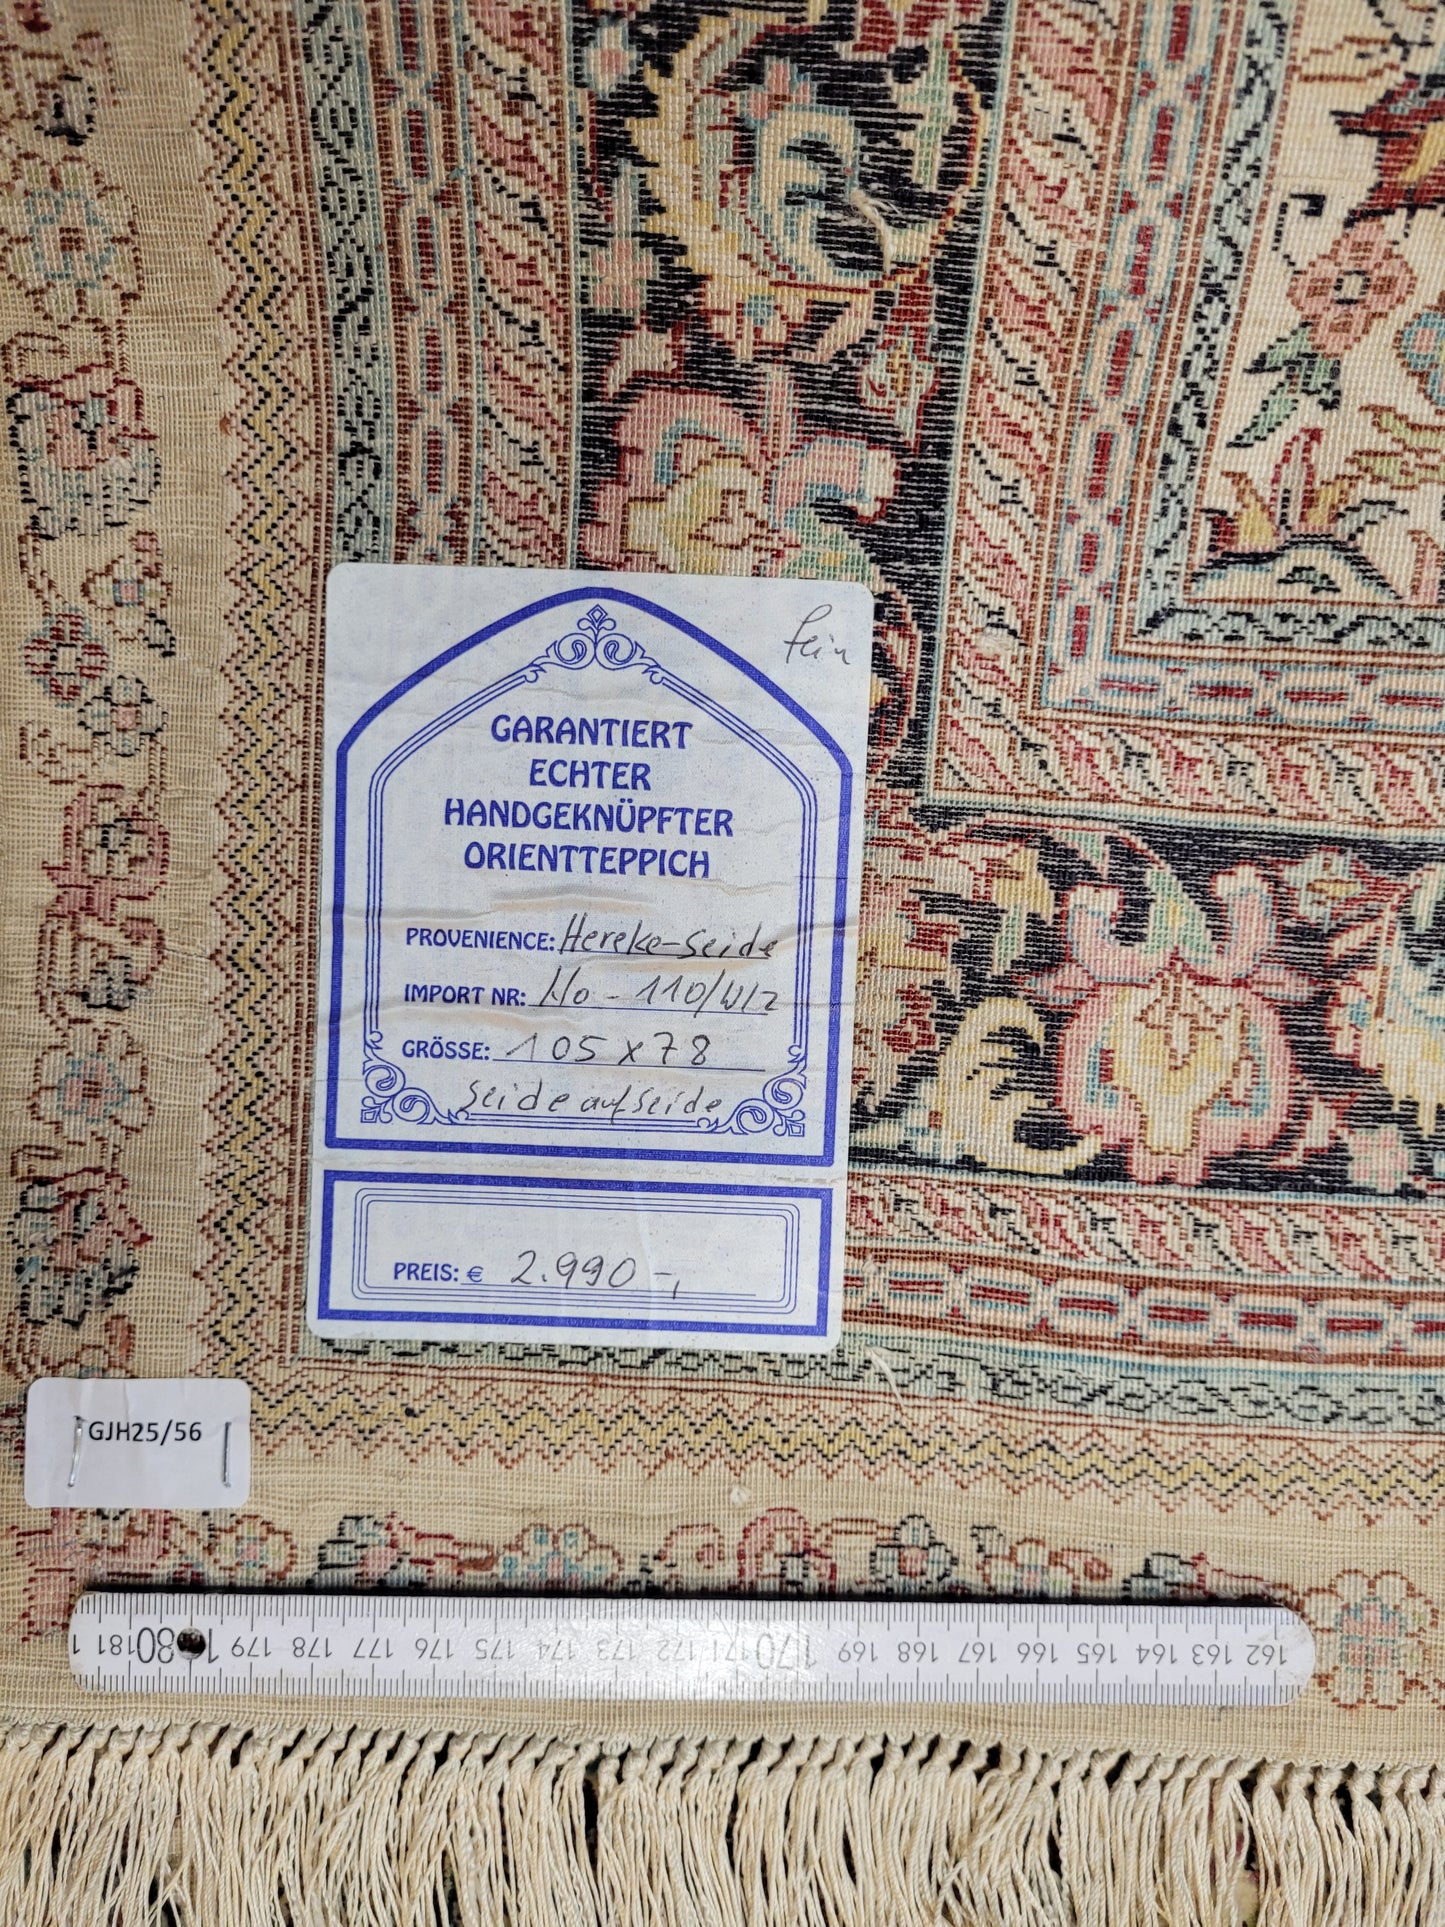 fein
GARANTIERT
ECHTER
HANDGEKNÜPFTER
ORIENTTEPPICH
PROVENIENCE: Hereke-Seide
IMPORT NR: - 110/
GRÖSSE: 105 x 78
Seide auf Seide
PREIS: € 2.990-,
GJH25/56
1 181 180 179 178 177 176 175 174 173 172 171 170 169 168 167 166 165 164 163 162